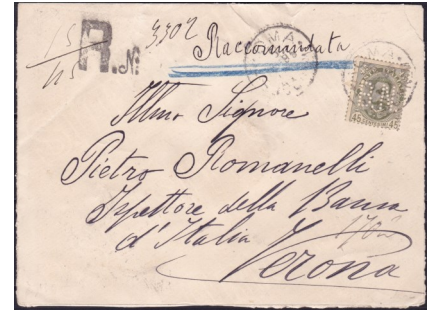 15/45 R. N. 3302
Raccomandata
ROMA
45 45
Illmo Signore
Pietro Romanelli
Ispettore della Banca
d'Italia
Verona